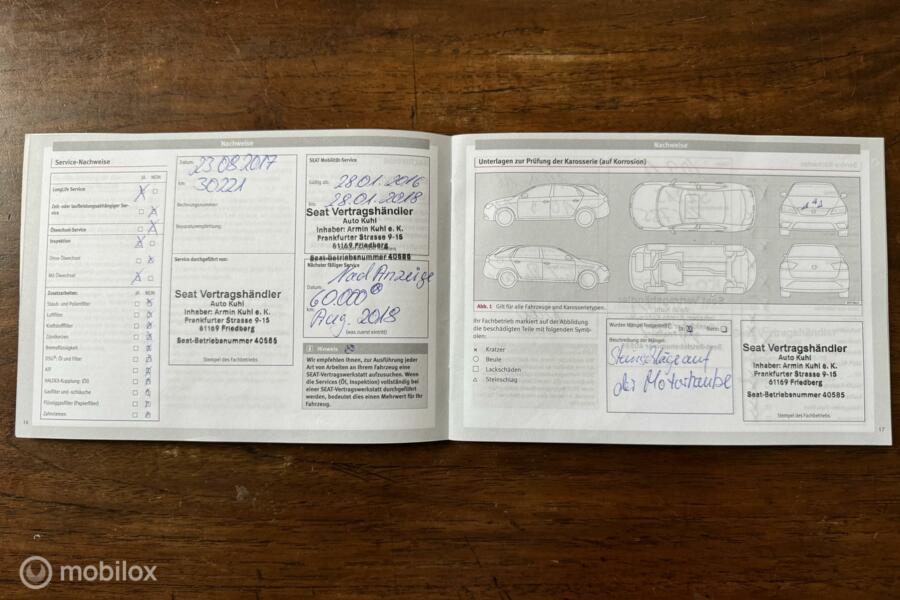 Nachweise
Service-Nachweise
JA NEIN
LongLife Service
Zeit- oder laufleistungsabhängiger Ser-
vice
Ölwechsel-Service
Inspektion
Ohne Ölwechsel
Mit Ölwechsel
Zusatzarbeiten:
Staub- und Pollenfilter
Luftfilter
Kraftstofffilter
Zündkerzen
Bremsflüssigkeit
DSG®: Öl und Filter
ATF
HALDEX-Kupplung: (Öl)
Gasfilter und -schläuche
Flüssiggasfilter (Papierfilter)
Zahnriemen
16
Datum:
23.08.2017
km:
30221
Rechnungsnummer:
Reparaturempfehlung:
Service durchgeführt von:
Seat Vertragshändler
Auto Kuhl
Inhaber: Armin Kuhl e. K.
Frankfurter Strasse 9-15
61169 Friedberg
Seat-Betriebsnummer 40585
Stempel des Fachbetriebs
SEAT Mobilitäts-Service
Gültig ab:
28.01.2016
bis:
28.01.2018
Seat Vertragshändler
Auto Kuhl
Inhaber: Armin Kuhl e. K.
Frankfurter Strasse 9-15
61169 Friedberg
Seat-Betriebsnummer 40585
Nächster fälliger Service
Nach Anzeige
Datum:
60.000
km:
Aug. 2018
(was zuerst eintritt)
Hinweis
Wir empfehlen Ihnen, zur Ausführung jeder
Art von Arbeiten an Ihrem Fahrzeug eine
SEAT-Vertragswerkstatt aufzusuchen. Wenn
die Services (Öl, Inspektion) vollständig bei
einer SEAT-Vertragswerkstatt durchgeführt
werden, bedeutet dies einen Mehrwert für Ihr
Fahrzeug.
Nachweise
Unterlagen zur Prüfung der Karosserie (auf Korrosion)
Abb. 1 Gilt für alle Fahrzeuge und Karosserietypen.
Ihr Fachbetrieb markiert auf der Abbildung
die beschädigten Teile mit folgenden Symb-
olen:
× Kratzer
○ Beule
□ Lackschäden
△ Steinschlag
Wurden Mängel festgestellt? Ja: Nein:
Beschreibung der Mängel:
Steinschläge auf
der Motorhaube
Seat Vertragshändler
Auto Kuhl
Inhaber: Armin Kuhl e. K.
Frankfurter Strasse 9-15
61169 Friedberg
Seat-Betriebsnummer 40585
Stempel des Fachbetriebs
17
mobilox